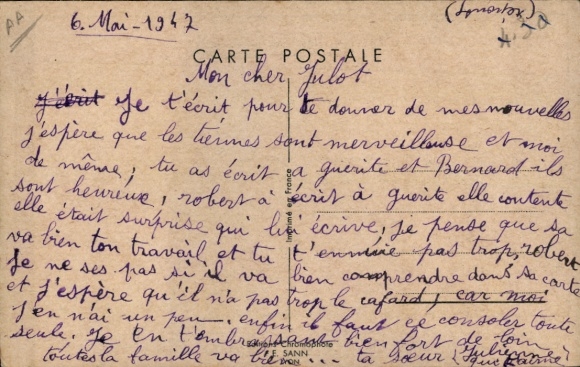 PA
6. Mai - 1947
4,50
CARTE POSTALE
Mon cher Julot
j'écrit Je t'écrit pour te donner de mes nouvelles
j'espère que les tiennes sont merveilleuse et moi
de même, tu as écrit a guerite et Bernard ils
sont heureux, robert à écrit à guerite elle contente
elle était surprise qui lui écrive, je pense que sa
va bien ton travail et tu t'ennuie pas trop, robert
Je ne ses pas si il va bien comprendre dans sa carte
et j'espère qu'il n'a pas trop le cafard, car moi
J'en n'ai un peu, enfin il faut ce consoler toute
seule. Je en t'embrassant bien fort de loin
toutes la famille va bien ... ta sœur Julienne
qui t'aime
Imprimé en France
Editions Chromophote
E. SANN
LYON